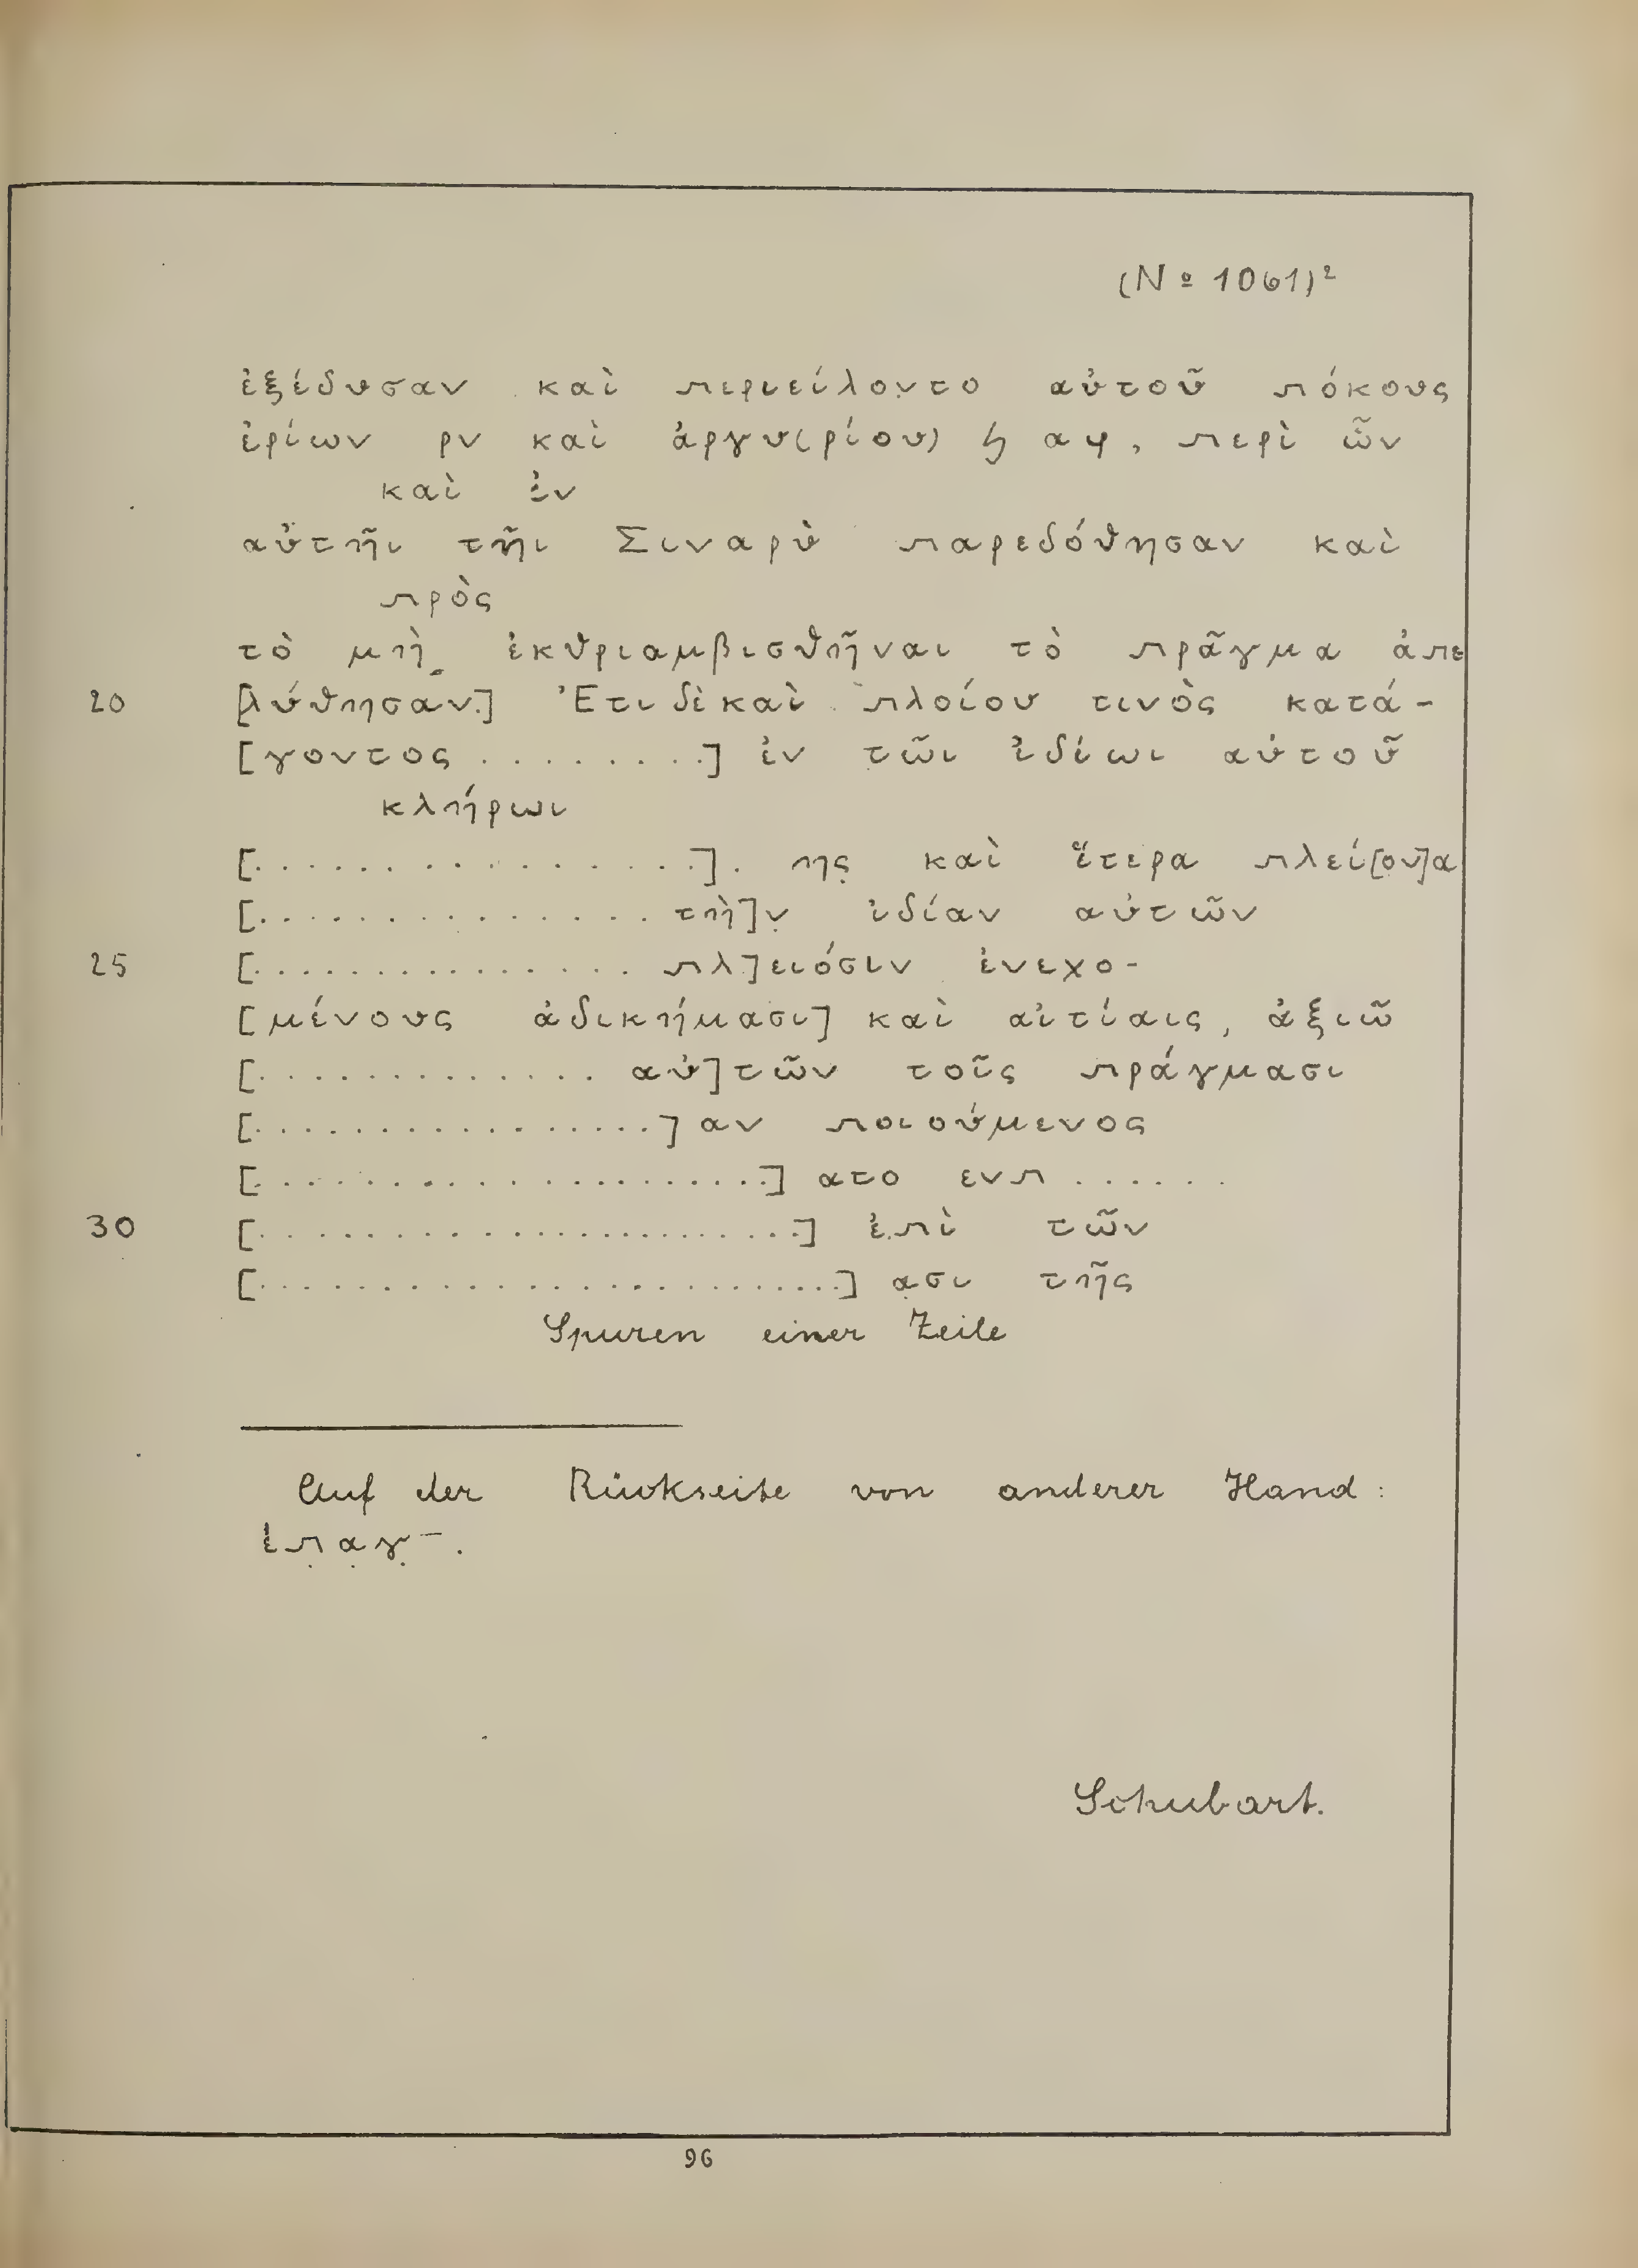 (Nº 1061)²
ἐξέδυσαν καὶ περιείλοντο αὐτοῦ πόκους
ἐρίων ρν καὶ ἀργυ(ρίου) ϟ αφ, περὶ ὧν
καὶ ἐν
αὐτῆι τῆι Σιναρὺ παρεδόθησαν καὶ
πρὸς
τὸ μὴ ἐκθριαμβισθῆναι τὸ πρᾶγμα ἀπε
20 [λύθησαν.] Ἔτι δὲ καὶ πλοίου τινὸς κατά-
[γοντος ........] ἐν τῶι ἰδίωι αὐτοῦ
κλήρωι
[................]. ης καὶ ἕτερα πλεί[ον]α
[............... τὴ]ν ἰδίαν αὐτῶν
25 [.............. πλ]ειόσιν ἐνεχο-
[μένους ἀδικήμασι] καὶ αἰτίαις, ἀξιῶ
[............. αὐ]τῶν τοῖς πράγμασι
[...............]αν ποιούμενος
[...................] ατο ενπ ......
30 [....................] ἐπὶ τῶν
[......................] ασι τῆς
Spuren einer Zeile
Auf der Rückseite von anderer Hand:
ἐπαγ‾.
Schubart.
96